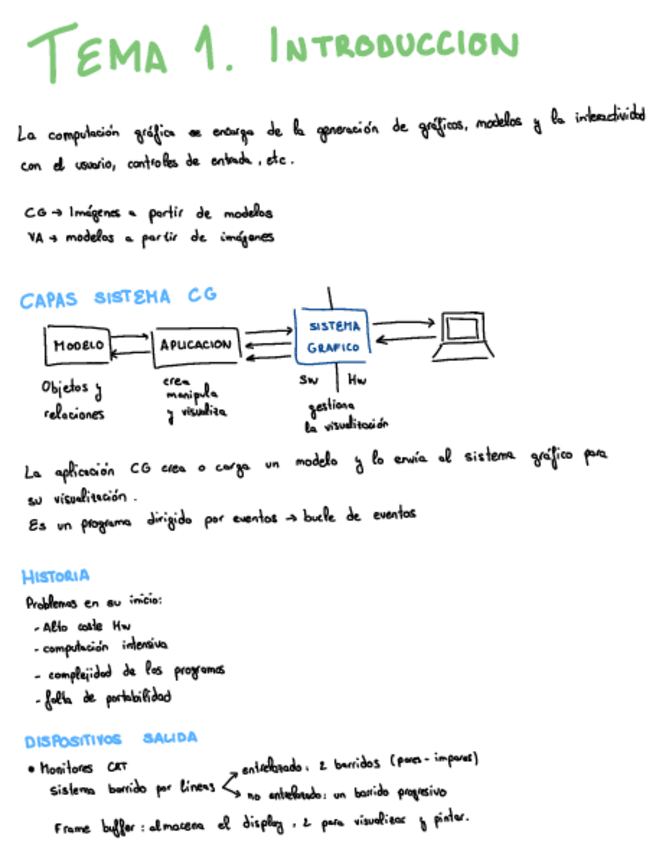 TEMA 1. INTRODUCCION
La computación gráfica se encarga de la generación de gráficos, modelos y la interactividad
con el usuario, controles de entrada, etc.
CG → Imágenes a partir de modelos
VA → modelos a partir de imágenes
CAPAS SISTEMA CG
MODELO
APLICACION
SISTEMA
GRAFICO
Objetos y
relaciones
crea
manipula
y visualiza
SW | HW
gestiona
la visualización
La aplicación CG crea o carga un modelo y lo envía al sistema gráfico para
su visualización.
Es un programa dirigido por eventos → bucle de eventos
HISTORIA
Problemas en su inicio:
- Alto coste HW
- computación intensiva
- complejidad de los programas
- falta de portabilidad
DISPOSITIVOS SALIDA
• Monitores CRT
entrelazado: 2 barridos (pares - impares)
Sistema barrido por líneas
no entrelazado: un barrido progresivo
Frame buffer: almacena el display, 2 para visualizar y pintar.